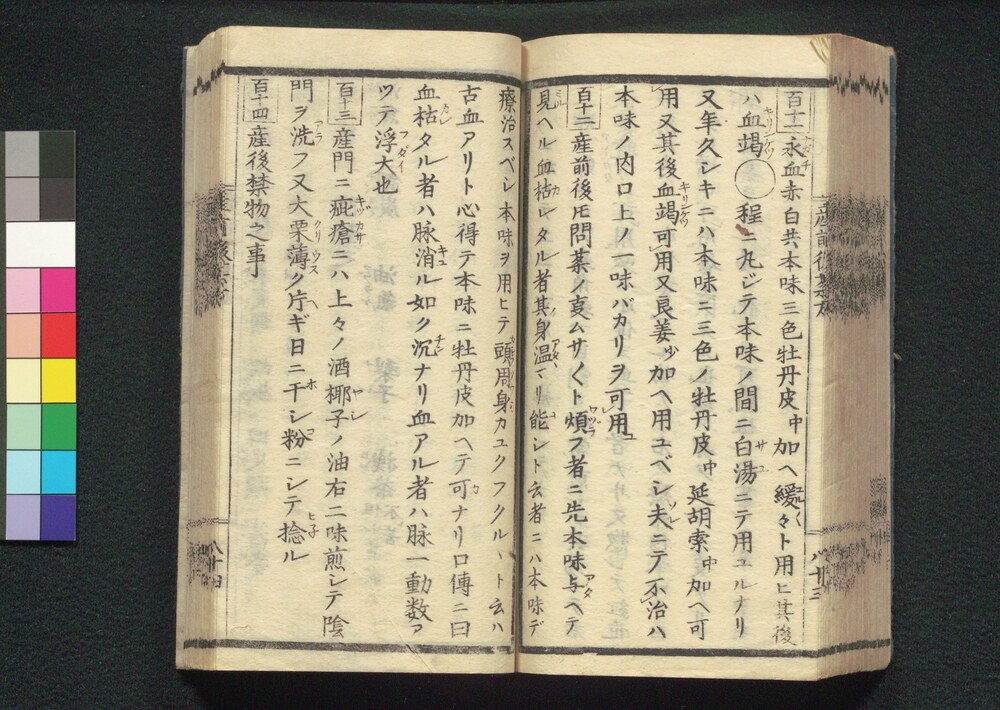 百十一 永血赤白共本味三色牡丹皮中加ヘ緩々ト用ヒ其後
ハ血竭〇程ニ丸ジテ本味ノ間ニ白湯ニテ用ユルナリ
又年久シキニハ本味ニ三色ノ牡丹皮中延胡索中加ヘ可
用又其後血竭可用又良姜少加ヘ用ユベシ夫ニテ不治ハ
本味ノ内口上ノ一味バカリヲ可用
百十二 産前後ニ問薬ノ支ムサ〱ト煩フ者ニ先本味与ヘテ
見ヘル血枯レタル者其身温マリ能シト云者ニハ本味デ
療治スベシ本味ヲ用ヒテ頭周身カユクフクルヽト云ハ
古血アリト心得テ本味ニ牡丹皮加ヘテ可ナリ口傳ニ曰
血枯タル者ハ脉消ル如ク沉ナリ血アル者ハ脉一動数ア
ツテ浮大也
百十三 産門ニ疵瘡ニハ上々ノ酒椰子ノ油右二味煎シテ陰
門ヲ洗フ又大栗薄ク片ギ日ニ干シ粉ニシテ捻ル
百十四 産後禁物之事
八十三
八十四